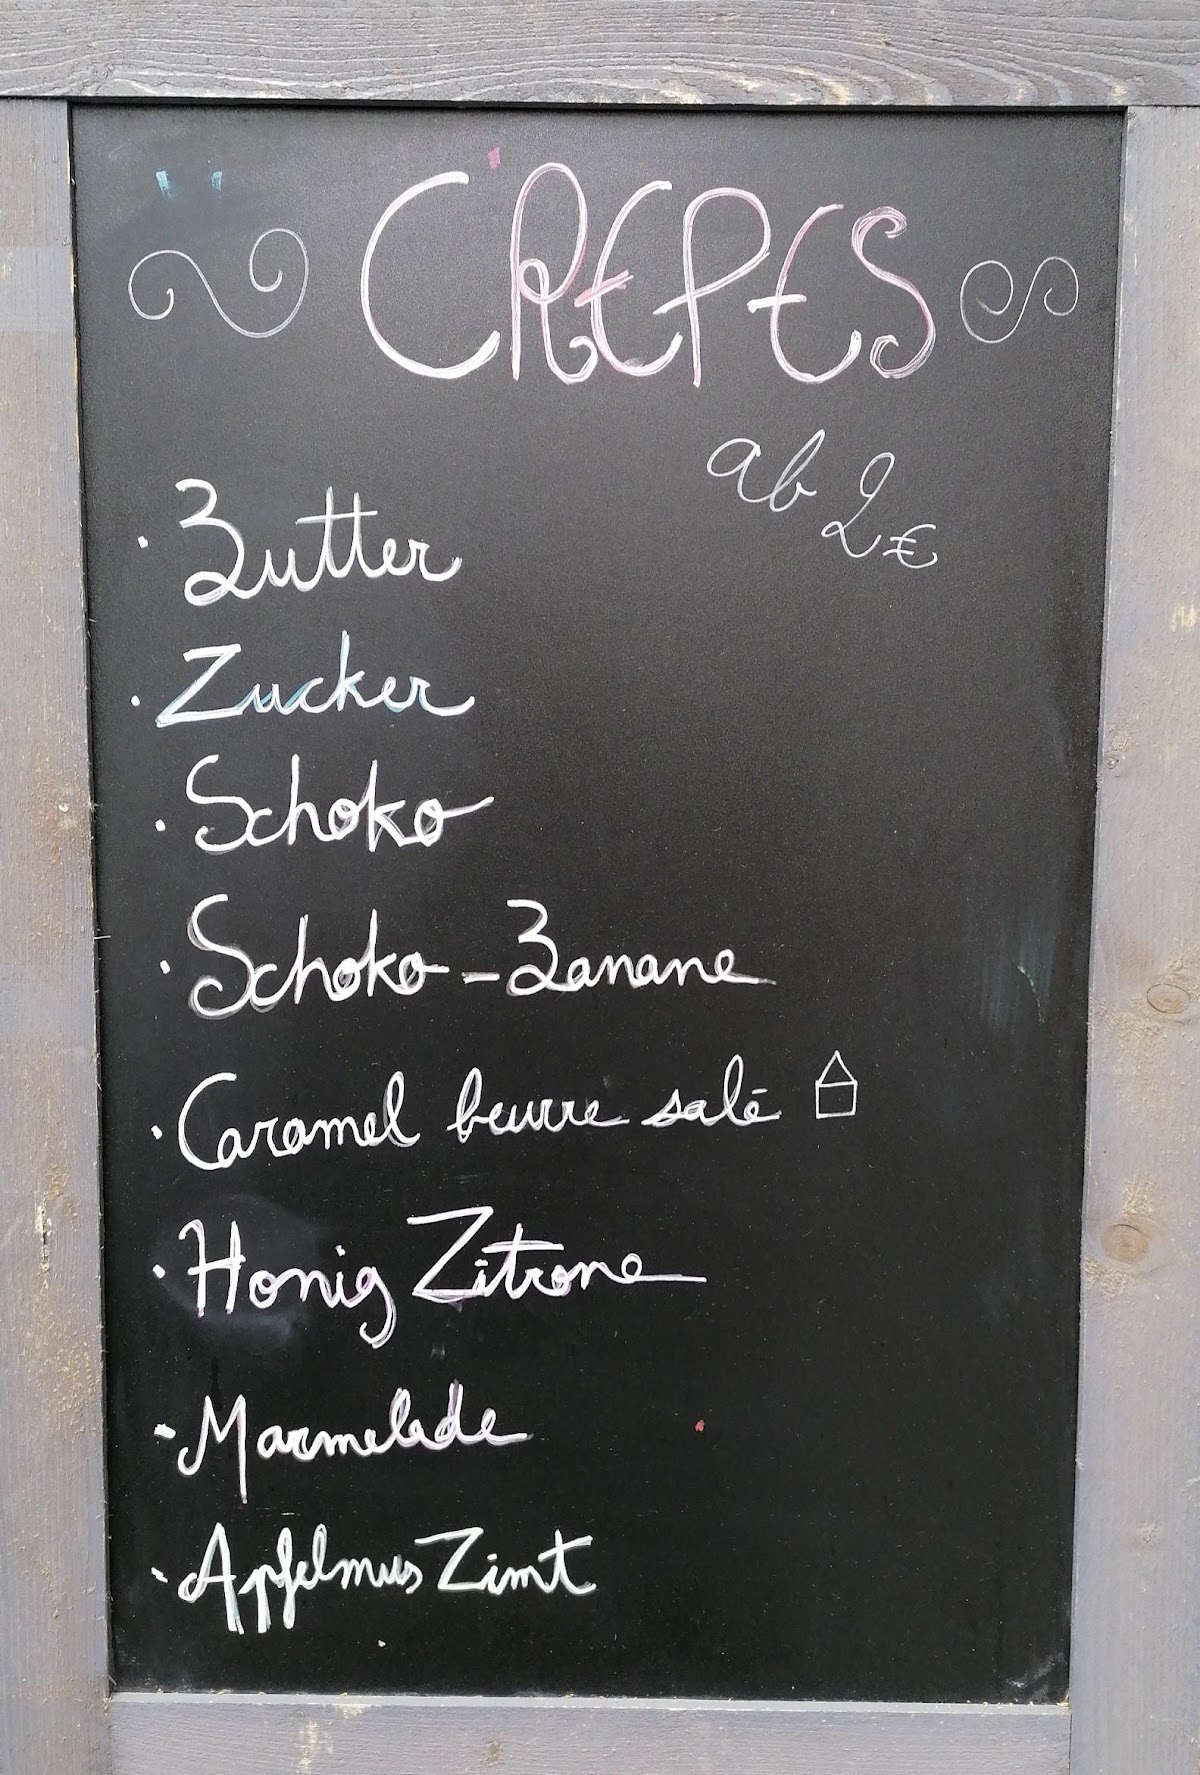 CREPES
ab 2€
· Butter
· Zucker
· Schoko
· Schoko-Banane
· Caramel beurre salé
· Honig Zitrone
· Marmelade
· Apfelmus Zimt